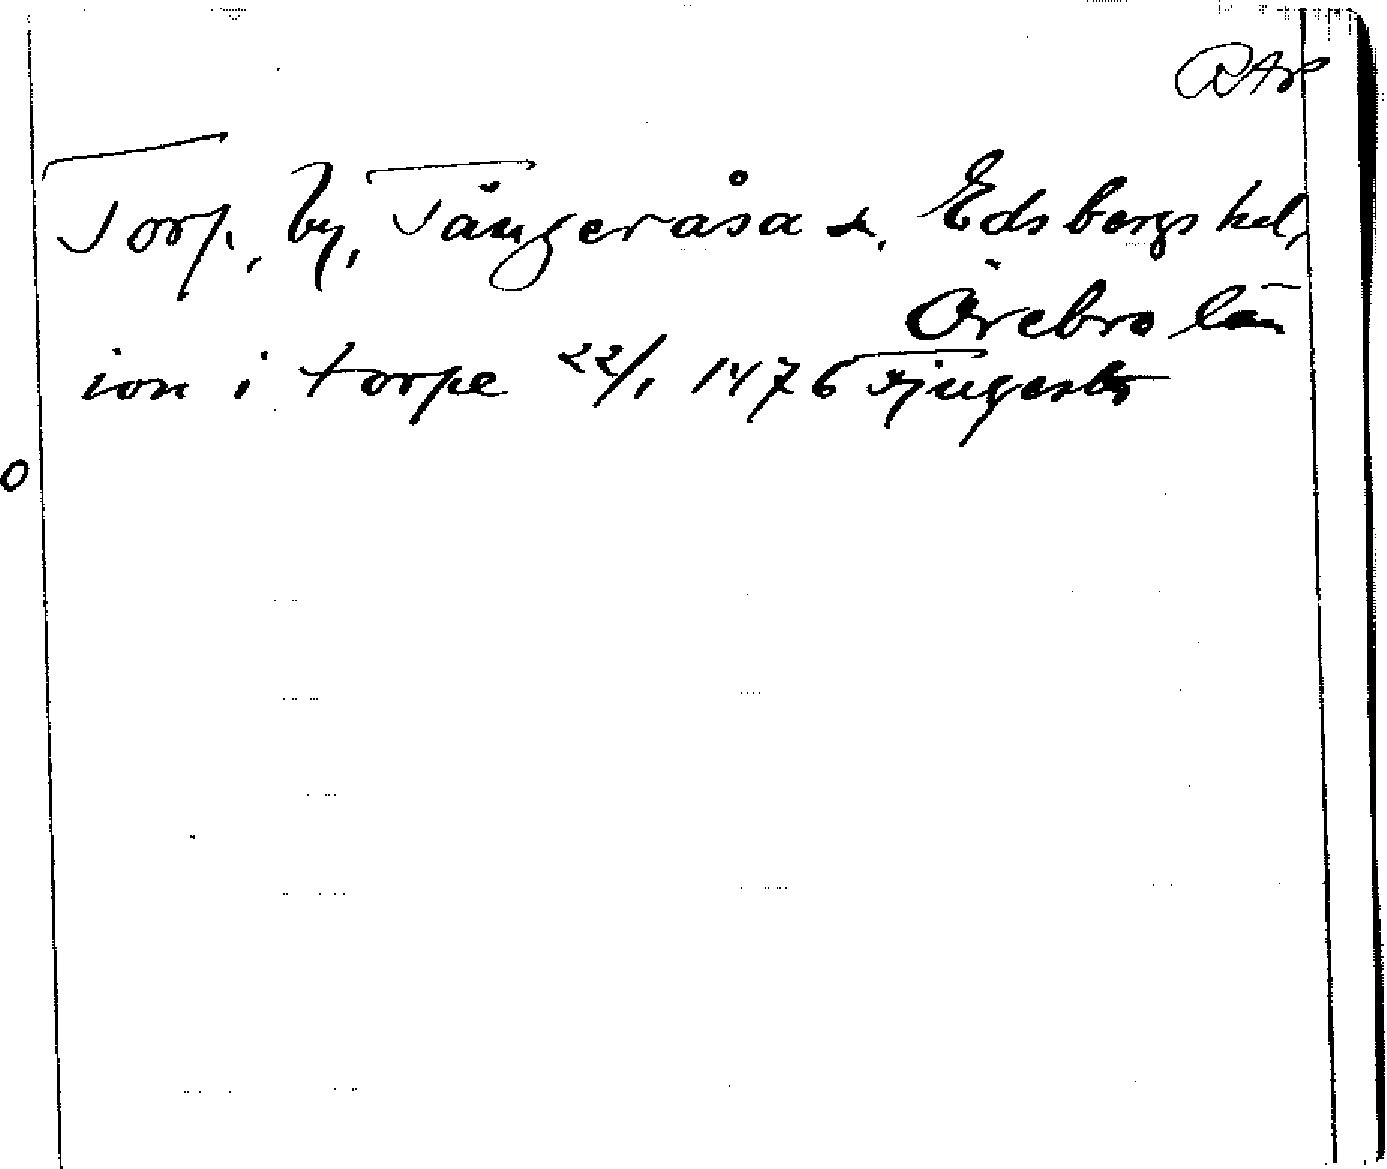 RAp
Torp, by, Tångeråsa sn, Edsbergs hd,
Örebro län
ion i torpe 22/1 1476 Tjugesta